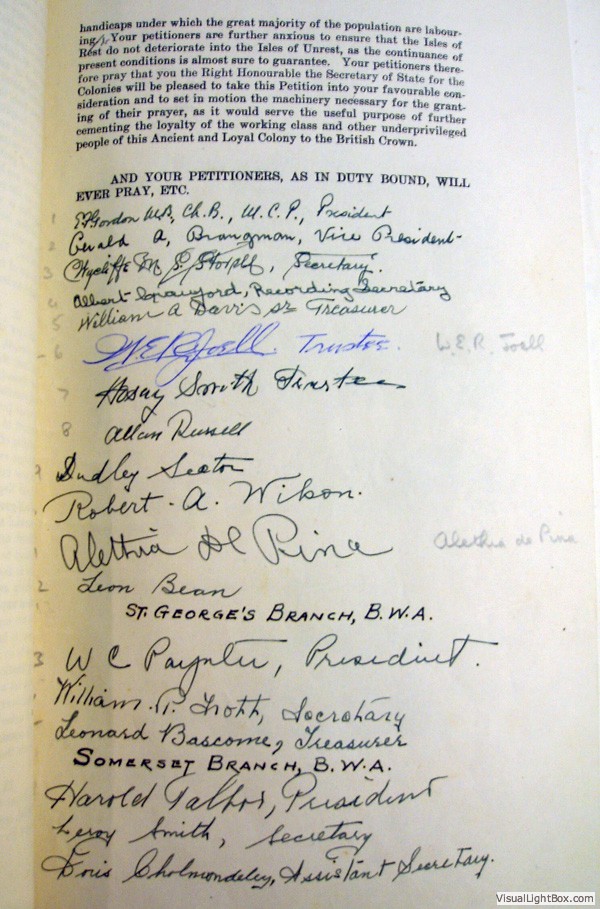 handicaps under which the great majority of the population are labour-
ing. Your petitioners are further anxious to ensure that the Isles of
Rest do not deteriorate into the Isles of Unrest, as the continuance of
present conditions is almost sure to guarantee. Your petitioners there-
fore pray that you the Right Honourable the Secretary of State for the
Colonies will be pleased to take this Petition into your favourable con-
sideration and to set in motion the machinery necessary for the grant-
ing of their prayer, as it would serve the useful purpose of further
cementing the loyalty of the working class and other underprivileged
people of this Ancient and Loyal Colony to the British Crown.
AND YOUR PETITIONERS, AS IN DUTY BOUND, WILL
EVER PRAY, ETC.
1 EFGordon M.B, Ch.B., M.C.P., President
2 Gerald A, Brangman, Vice President
3 Wycliffe M S Stovell, Secretary.
4 Albert Crawford, Recording Secretary
5 William A Davis Sr Treasurer
6 W.E.R. Joell. Trustee. W.E.R. Joell
7 Smith Trustee
8 Allan Russell
9 Dudley Seaton
Robert. A. Wilson.
Alethia de Pina Alethia de Pina
2 Leon Bean
ST. GEORGE'S BRANCH, B.W.A.
3 W C Paynter, President.
William. P. Trott, Secretary
Leonard Bascome, Treasurer
SOMERSET BRANCH, B.W.A.
Harold Talbot, President
Leroy Smith, Secretary
Doris Cholmondeley, Assistant Secretary.
VisualLightBox.com